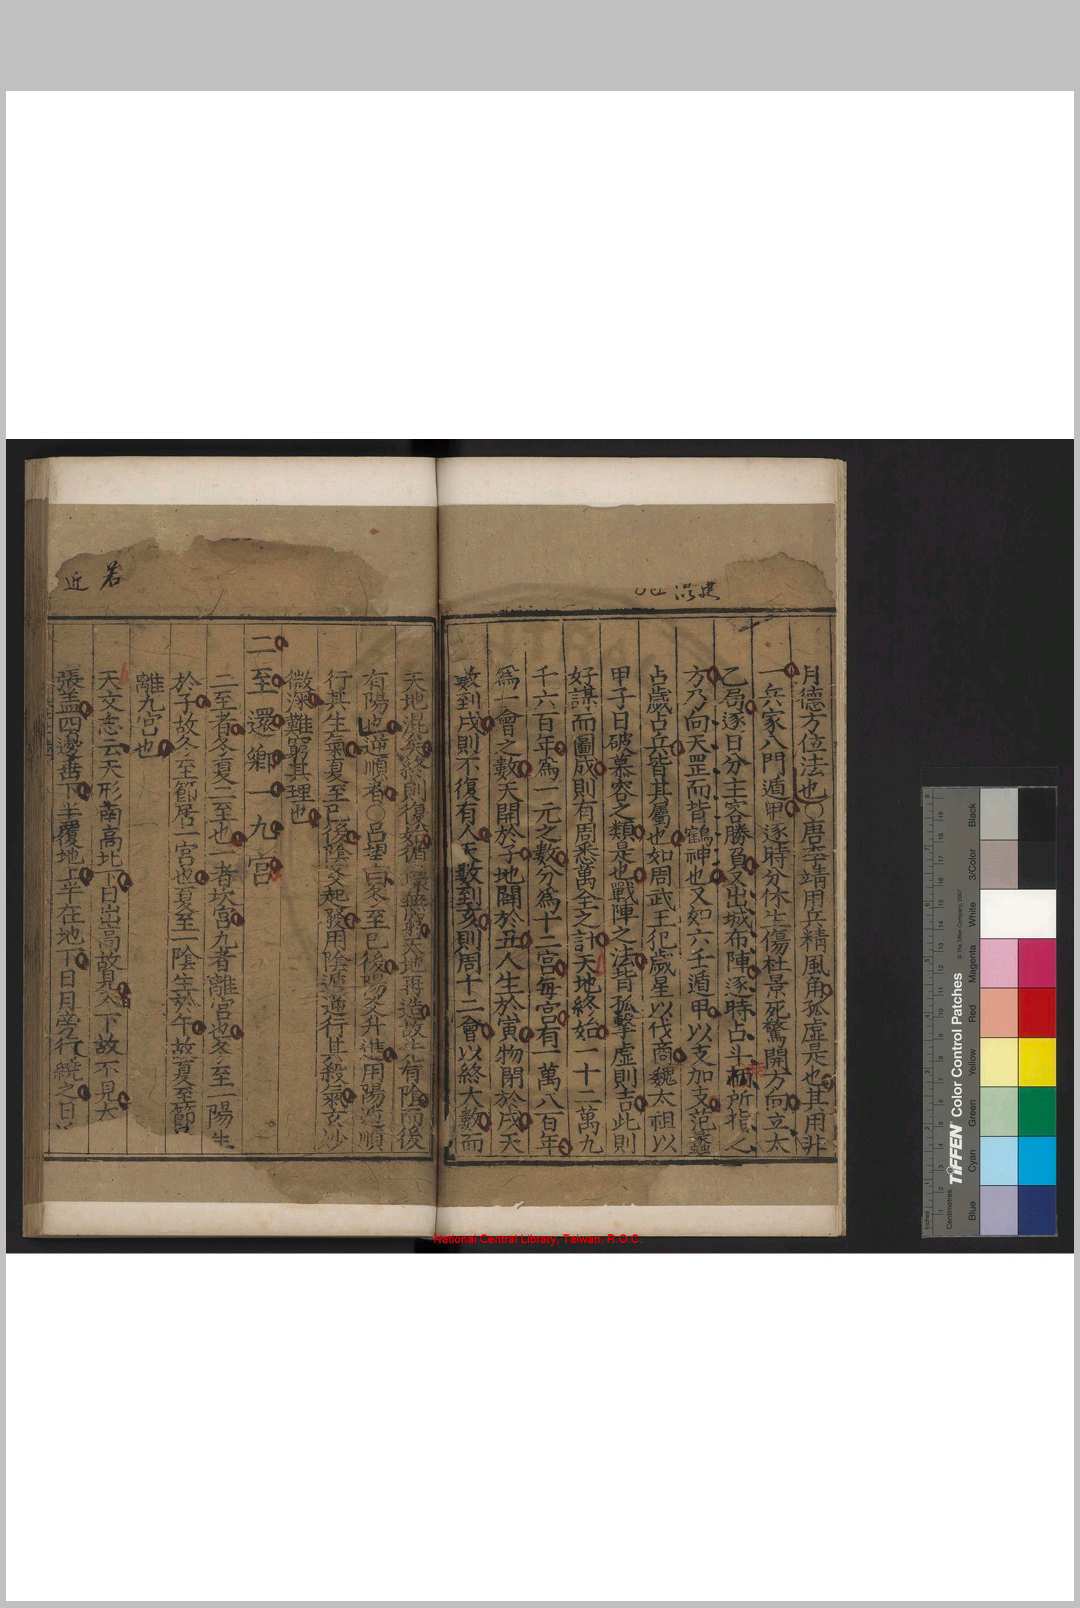 月德方位法也○唐李靖用兵精風角孤虛是也其用非
一兵家八門遁甲逐時分休生傷杜景死驚開方向立太
乙局逐日分主客勝負又出城布陣逐時占斗柄所指之
方乃向天罡而背鶴神也又如六壬遁甲以支加支范蠡
占歲占兵皆其屬也如周武王犯歲星以伐商魏太祖以
甲子日破慕容之類是也戰陣之法背孤擊虛則吉此則
好謀而圖成則有周悉萬全之計天地終始一十二萬九
千六百年為一元之數分為十二宮每宮有一萬八百年
為一會之數天開於子地闢於丑人生於寅物閉於戌天
數到戌則不復有人天數到亥則周十二會以終大數而
天地混矣終則復始循環無窮天地再造故先有陰而後
有陽也逆順者○呂望曰冬至已後陽爻升進用陽造順
行其生氣夏至已後陰爻起發用陰遁逆行其殺氣玄妙
微深難窮其理也
二至還鄉一九宮
二至者冬夏二至也一者坎宮九者離宮也冬至一陽生
於子故冬至節居一宮也夏至一陰生於午故夏至節
離九宮也
天文志云天形南高北下日出高故見入下故不見天
張蓋四邊垂下半覆地上半在地下日月旁行繞之日
若
近
National Central Library, Taiwan, R.O.C.
TIFFEN Color Control Patches
© The Tiffen Company, 2007
Inches
Centimetres
Blue
Cyan
Green
Yellow
Red
Magenta
White
3/Color
Black